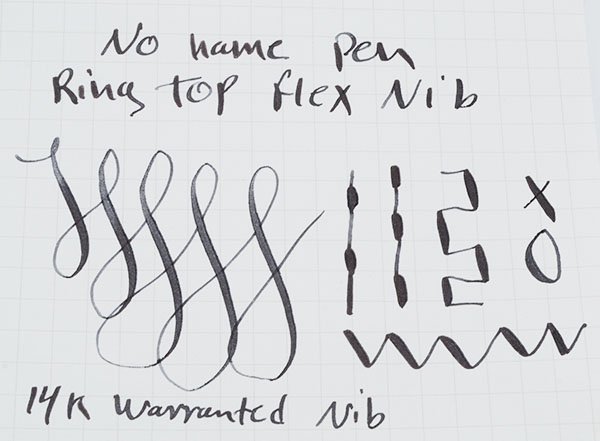 No name pen
Ring top flex Nib
X
O
14K Warranted Nib